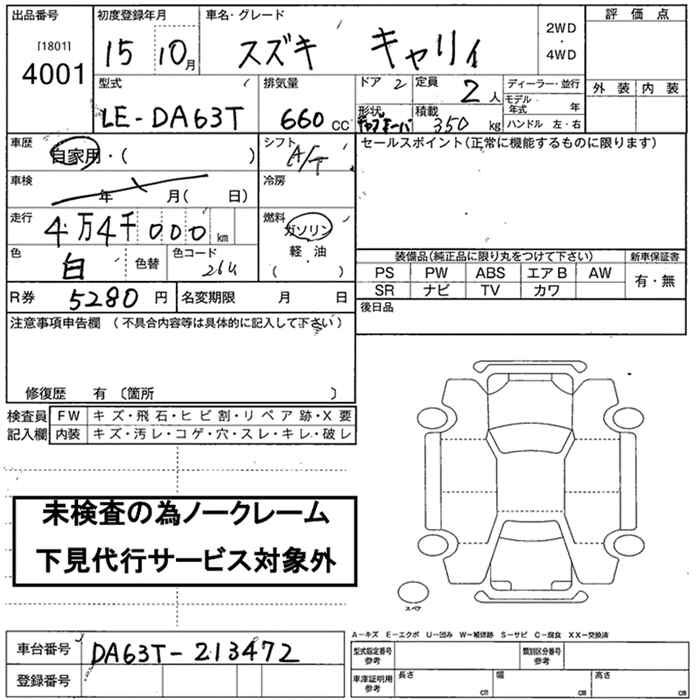 出品番号 初度登録年月 車名・グレード 評価点
[1801] 4001 15 10月 スズキ キャリィ 2WD・4WD
外装 内装
型式 排気量 ドア 2 定員 2人 ディーラー・並行
LE-DA63T 660 CC 形状 積載 350 kg モデル年式 年
ハンドル 左・右
車歴 自家用・( ) シフト A/T セールスポイント(正常に機能するものに限ります)
車検 年 月( 日) 冷房
走行 4万4千000 km 燃料 ガソリン
軽・油
( )
色 白 色替 色コード 26U
装備品(純正品に限り丸をつけて下さい) 新車保証書
PS PW ABS エアB AW 有・無
SR ナビ TV カワ
R券 5280 円 名変期限 月 日 後日品
注意事項申告欄 (不具合内容等は具体的に記入して下さい)
修復歴 有 〔箇所 〕
検査員 FW キズ・飛石・ヒビ割・リペア跡・X要
記入欄 内装 キズ・汚レ・コゲ・穴・スレ・キレ・破レ
未検査の為ノークレーム
下見代行サービス対象外
スペア
A−キズ E−エクボ U−凹み W−補修跡 S−サビ C−腐食 XX−交換済
車台番号 DA63T-213472 型式指定番号 参考 類別区分番号 参考
登録番号 車庫証明用 参考 長さ cm 幅 cm 高さ cm